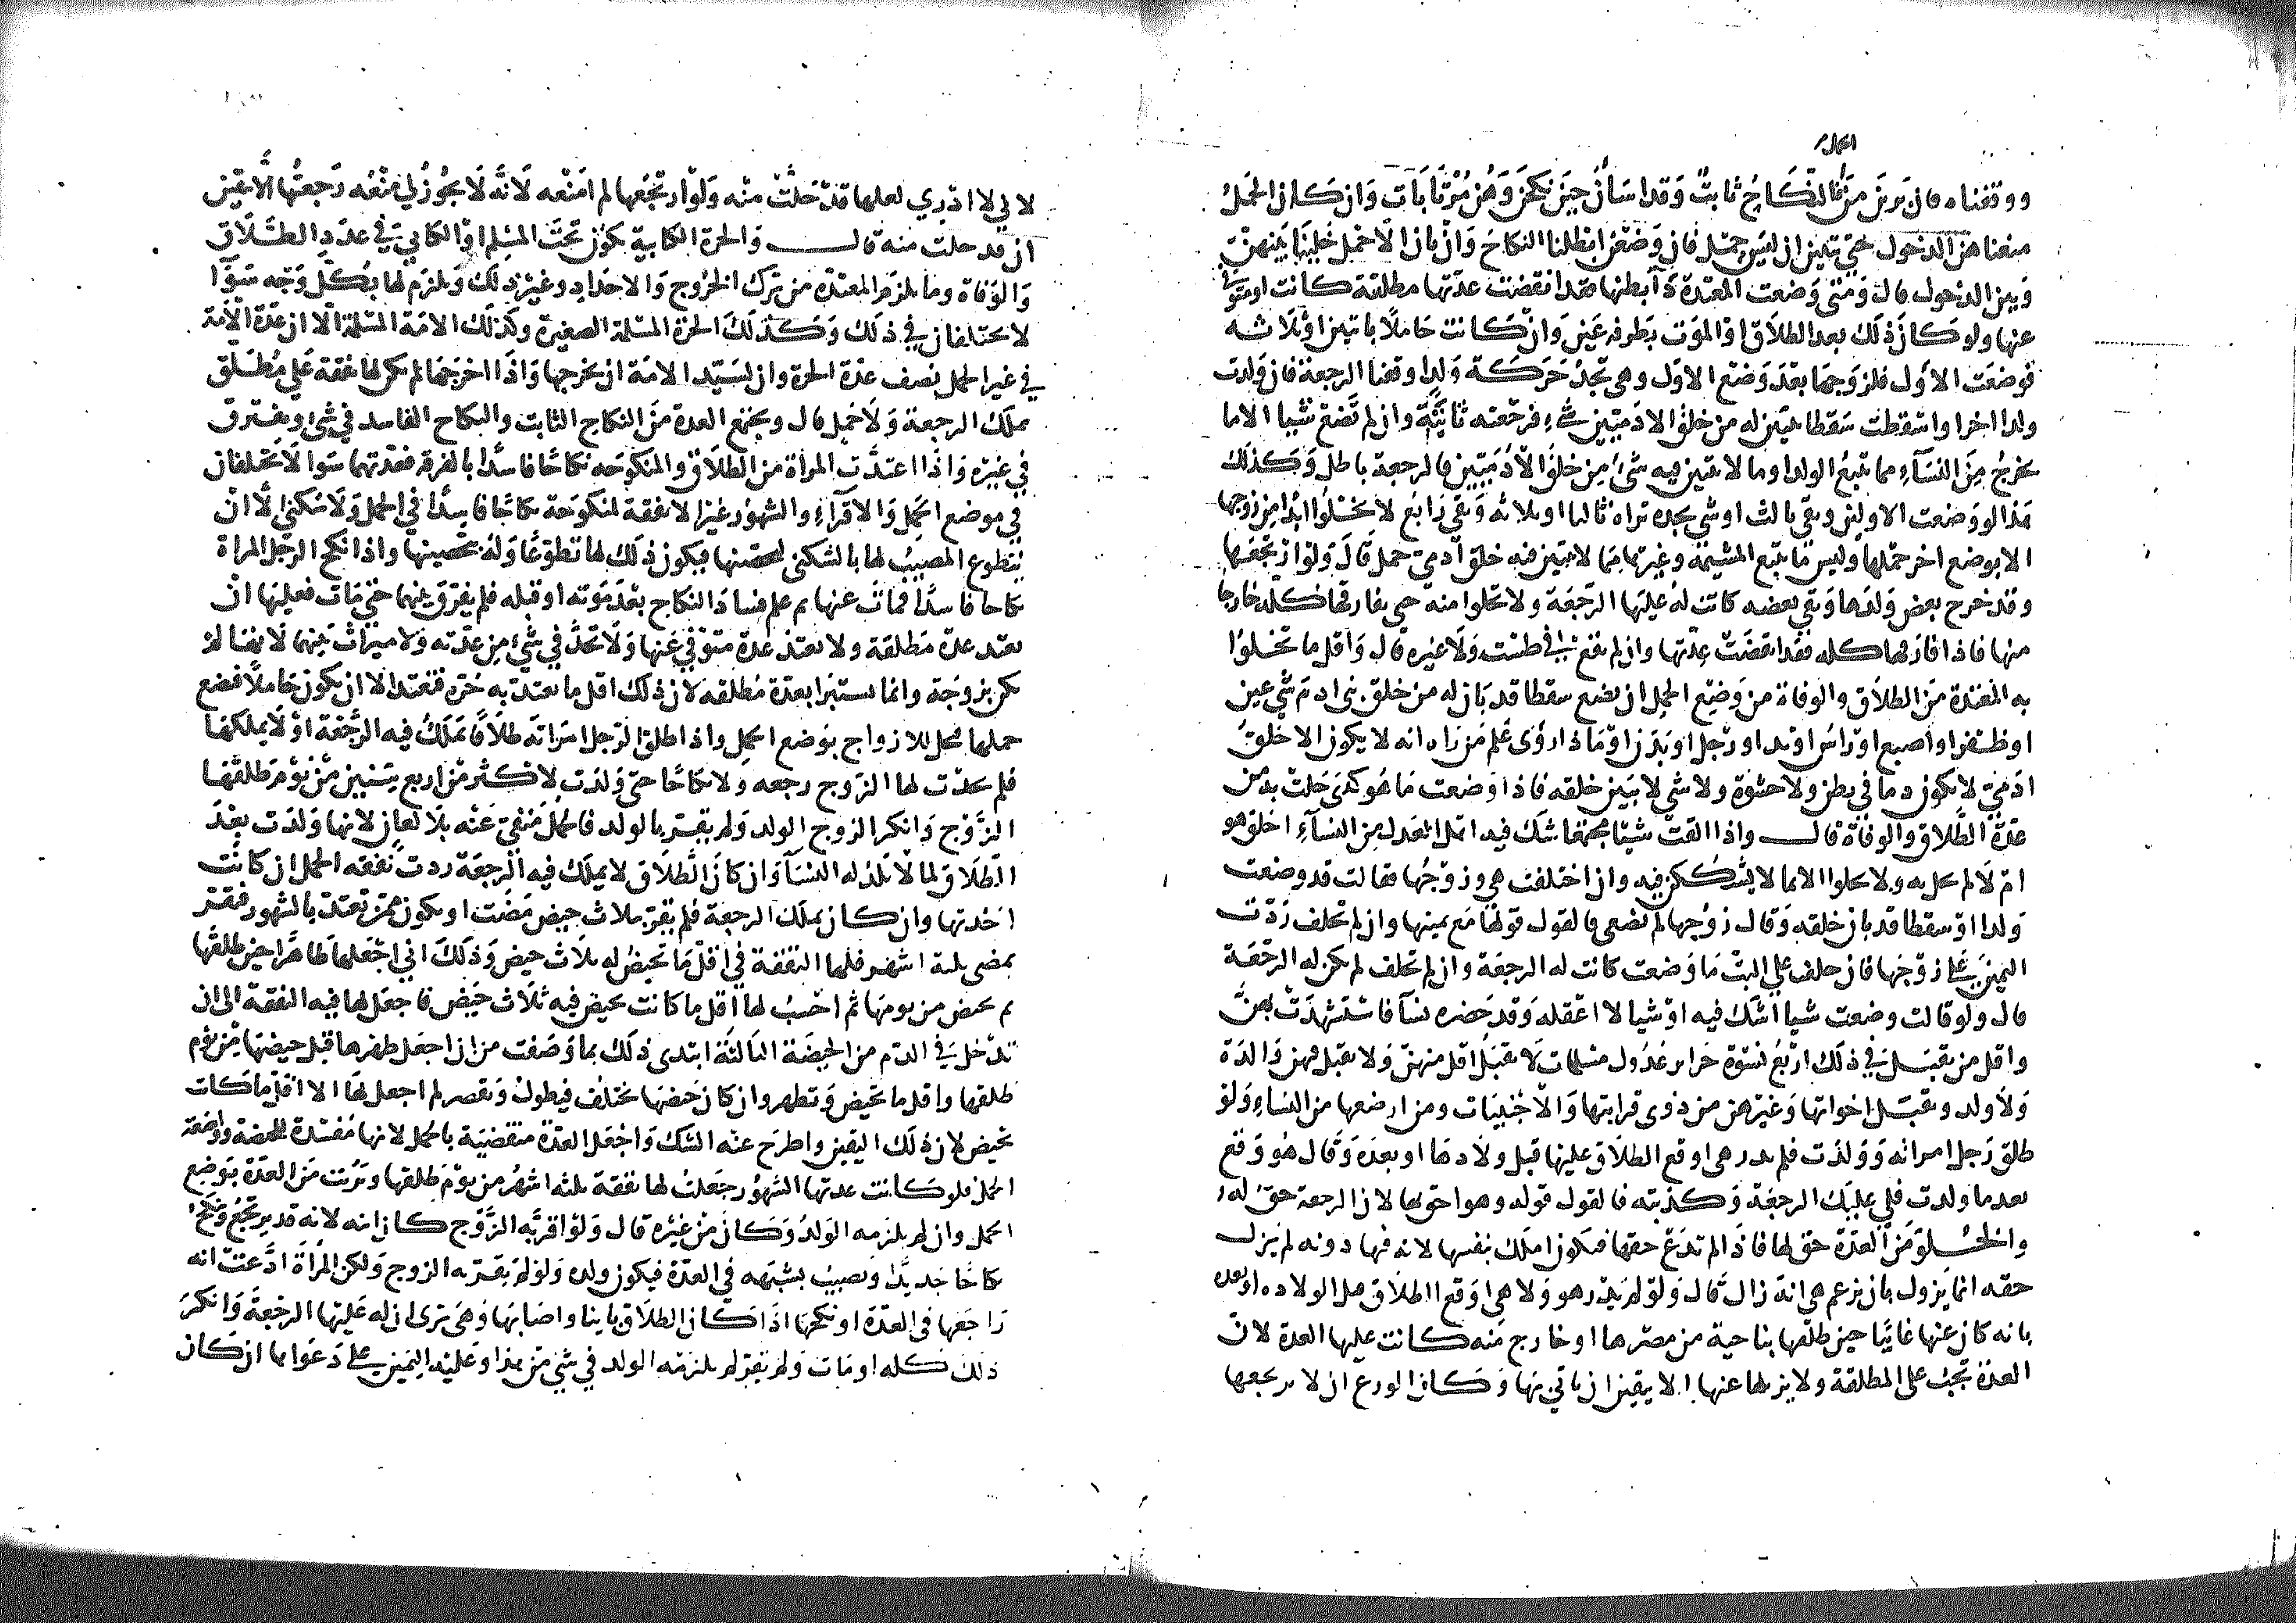 الحمل
ووقفناه فان برين من فالنكاح ثابت وقد اسأن حين نكحن وهن مرتابات وان كان الحمل
منعناهن الدخول حتى يتبين ان ليس حمل فان وضعن ابطلنا النكاح وان بان الا حمل خلينا بينهن
وبين الدخول قال ومتى وضعت المعتدة ما في بطنها فقد انقضت عدتها مطلقة كانت او متوفى
عنها ولو كان ذلك بعد الطلاق او الموت بطرفة عين وان كانت حاملا باثنين او ثلاثه
فوضعت الاول فلزوجها بعد وضع الاول وهي تجد حركة ولد اوقفنا الرجعة فان ولدت
ولدا اخر او اسقطت سقطا تبين له من خلق الادميين شيء فرجعته ثابتة وان لم تضع شيا الا ما
يخرج من النساء مما يتبع الولد او ما لا يتبين فيه شئ من خلق الادميين فالرجعة باطل وكذلك
هذا لو وضعت الاولين وبقي ثالث او شي تجده تراه ثالثا او ثلاثه وبقي رابع لا تخلوا ابدا من زوجها
الا بوضع اخر حملها وليس ما يتبع المشيمة وغيرها مما لا يتبين فيه خلق ادمي حمل قال ولو ارتجعها
وقد خرج بعض ولدها وبقي بعضه كانت له عليها الرجعة ولا تخلوا منه حتى يفارقها كله خارجا
منها فاذا فارقها كله فقد انقضت عدتها وان لم تقع في طست ولا غيره قال واقل ما تخلوا
به المعتدة من الطلاق والوفاة من وضع الحمل ان تضع سقطا قد بان له من خلق بني ادم شي عين
او ظفر او اصبع او راس او يد او رجل او بدن او ما اذا رؤى علم من راه انه لا يكون الا خلق
ادمي لا يكون دما في بطن ولا حشوة ولا شي لا يبين خلقه فاذا وضعت ما هو كذى حلت به من
عدة الطلاق والوفاة قال واذا القت شيئا مجتمعا شك فيه اهل العدل من النساء اخلق هو
ام لا لم تحل به ولا تخلوا الا بما لا يشككن فيه وان اختلفت هي وزوجها فقالت قد وضعت
ولدا او سقطا قد بان خلقه وقال زوجها لم تضعي فالقول قولها مع يمينها وان لم تحلف ردت
اليمين على زوجها فان حلف على البت ما وضعت كانت له الرجعة وان لم تحلف لم يكن له الرجعة
قال ولو قالت وضعت شيا اشك فيه او شيا لا اعقله وقد حضره نسآ فاستشهدت بهن
واقل من يقبل في ذلك اربع نسوة حراير عدول مسلمات لا يقبل اقل منهن ولا يقبل فيهن والدة
ولا ولد وتقبل اخواتها وغيرهن من ذوى قرابتها والاجنبيات ومن ارضعها من النساء ولو
طلق رجل امراته وولدت فلم يدر هي اوقع الطلاق عليها قبل ولادها او بعده وقال هو وقع
بعد ما ولدت فلي عليك الرجعة وكذبته فالقول قوله وهو احق بها لان الرجعة حق له
والخلو من العدة حق لها فاذا لم تدع حقها فتكون املك بنفسها لانه فيها دونه لم يزل
حقه انما يزول بان تزعم هي انه زال قال ولو لم يدر هو ولا هي اوقع الطلاق قبل الولاده او بعده
بانه كان عنها غايبا حين طلقها بناحية من مصرها او خارج منه كانت عليها العدة لان
العدة تجب على المطلقة ولا يزيلها عنها الا بيقين ان تاتي بها وكان الورع ان لا يرتجعها
لاني لا ادري لعلها قد حلت منه ولو ارتجعها لم امنعه لانه لا يجوز لي منعه رجعتها الا بيقين
ان قد حلت منه قال والحرة الكتابية تكون تحت المسلم او الكتابي في عدد الطلاق
والوفاة وما يلزم المعتدة من ترك الخروج والاحداد وغير ذلك ويلزم لها بكل وجه سوا
لا يختلفان في ذلك وكذلك الحرة المسلمة الصغيرة وكذلك الامة المسلمة الا ان عدة الامة
في غير الحمل نصف عدة الحرة وان لسيد الامة ان يخرجها واذا اخرجها لم يكن لها نفقة على مطلق
يملك الرجعة ولا حمل قال وتجتمع العدة من النكاح الثابت والنكاح الفاسد في شئ وتفترق
في غيره واذا اعتدت المراة من الطلاق والمنكوحه نكاحا فاسدا بالفرقه فعدتهما سوا لا تختلفان
في موضع الحمل والاقراء والشهور غير ان لا نفقة لمنكوحة نكاحا فاسدا في الحمل ولا سكنى الا ان
يتطوع المصيب لها بالسكنى لتحصنها فيكون ذلك لها تطوعا وله تحصينها واذا نكح الرجل المراة
نكاحا فاسدا فمات عنها ثم علم فساد النكاح بعد موته او قبله فلم يفرق بينهما حتى مات فعليها ان
تعتد عدة مطلقة ولا تعتد عدة متوفى عنها ولا تحد في شيء من عدته ولا ميراث بينهما لانها لم
تكن بزوجة وانما تستبرا بعدة مطلقه لان ذلك اقل ما تعتد به حرة فتعتد الا ان تكون حاملا فتضع
حملها فتحل للازواج بوضع الحمل واذا طلق الرجل امراته طلاقا يملك فيه الرجعة او لا يملكها
فلم يحدث لها الزوج رجعه ولا نكاحا حتى ولدت لاكثر من اربع سنين من يوم طلقها
الزوج وانكر الزوج الولد ولم يقر بالحمل فالحمل منفي عنه بلا لعان لانها ولدت بعد
الطلاق لما لا تلد له النسآ وان كان الطلاق لا يملك فيه الرجعة ردت نفقه الحمل ان كانت
اخذتها وان كان يملك الرجعة فلم تقر بثلاث حيض مضت او تكون ممن تعتد بالشهور فتقر
بمضي ثلثة اشهر فلها النفقة في اقل ما تحيض له ثلاث حيض وذلك اني اجعلها طاهرا حين طلقها
ثم تحيض من يومها ثم احسب لها اقل ما كانت تحيض فيه ثلاث حيض فاجعل لها فيه النفقة الى ان
تدخل في الدم من الحيضة الثالثة ابتدى ذلك بما وصفت من ان اجعل طهرها قبل حيضها من يوم
طلقها واقل ما تحيض وتطهر وان كان حيضها يختلف فيطول ويقصر لم اجعل لها الا اقل ما كانت
تحيض لان ذلك اليقين واطرح عنه الشك واجعل العدة منقضية بالحمل لانها مفسدة للحيضة واضعة
الحمل فلو كانت عدتها الشهور جعلت لها نفقة ثلثه اشهر من يوم طلقها وبرئت من العدة بوضع
الحمل وان لم يلزمه الولد وكان من غيره قال ولو اقر به الزوج كان ابنه لانه قد يرتجع وينكح
نكاحا جديدا ويصيب بشبهه في العدة فيكون ولده ولو لم يقر به الزوج ولكن المراة ادعت انه
راجعها في العدة او نكحها اذا كان الطلاق باينا واصابها وهي ترى ان له عليها الرجعة وانكر
ذلك كله او مات ولم يقر لم يلزمه الولد في شئ من هذا وعليه اليمين على دعواها ان كان